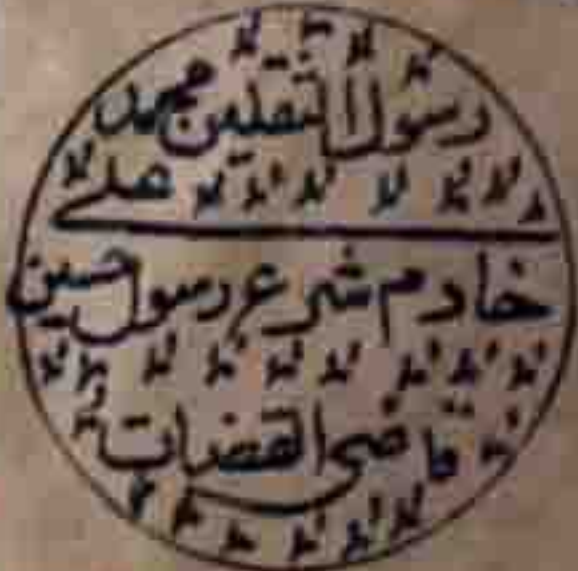 رسول الثقلين محمد
علی
خادم شرع رسول حسین
قاضی القضات